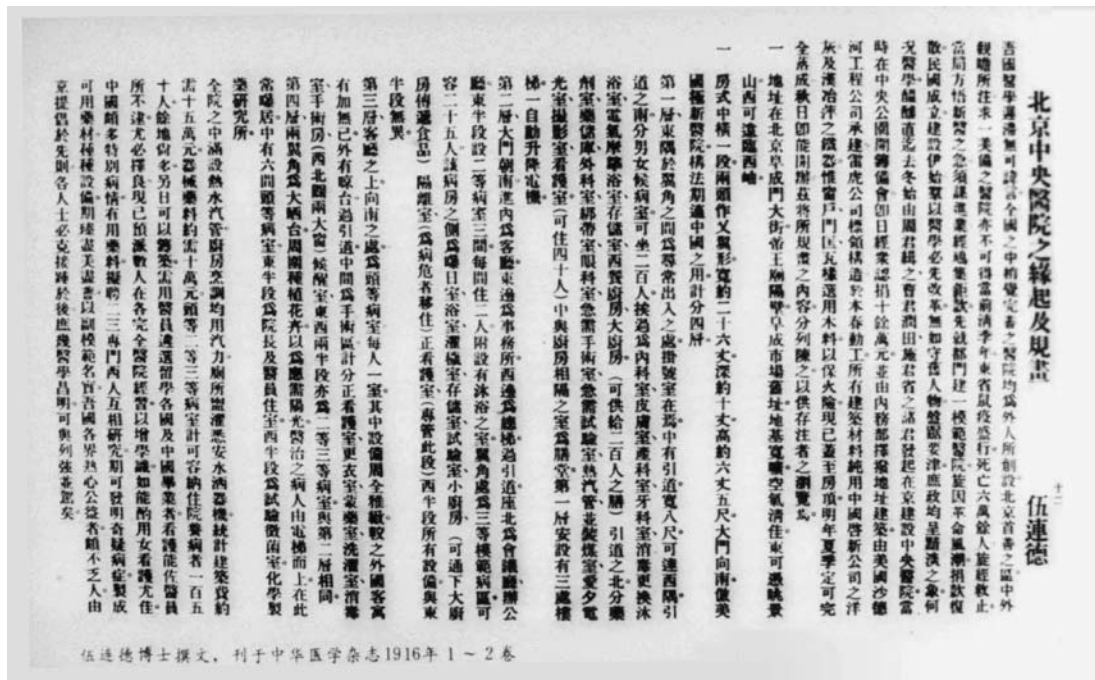 北京中央醫院之緣起及規畫
伍連德
十二
吾國醫學遲滯無可諱言全國之中稍覺完善之醫院均爲外人所創設北京首善之區中外
觀瞻所注求一美備之醫院亦不可得當前清季年東省鼠疫盛行死亡六萬餘人旋經救止
當局方悟新醫之急須講進業經集鉅欵先就都門建一模範醫院旋因革命風潮捐欵復
散民國成立建設伊始羣以醫學必先改革無如守舊人物盤踞要津庶政均呈黯淡之象何
況醫學醞釀迄去冬始由周君緝之曹君潤田施君省之諸君發起在京建設中央醫院當
時在中央公園開籌備會卽日經衆認捐十餘萬元並由內務部擇撥地址建築由美國沙德
河工程公司承建雷虎公司標領構造於本春動工所有建築材料純用中國啓新公司之洋
灰及漢冶萍之鐵器惟窗戶門匡瓦樣選用木料以保火險現已蓋至房頂明年夏季定可完
全落成秋日卽能開辦茲將所規畫之內容分列陳之以供存注者之瀏覽焉
一 地址在北京阜成門大街帝王廟隔壁阜成市場舊址地基寬曠空氣清佳東可憑眺景
山西可遠臨西岫
一 房式中橫一段兩頭作乂翼形寬約二十六丈深約十丈高約六丈五尺大門向南倣美
國極新醫院構法期適中國之用計分四層
第一層東隅於翼角之間爲尋常出入之處掛號室在焉中有引道寬八尺可達西隅引
道之南分男女候病室可坐二百人挨過爲內科室皮膚室產科室牙科室消毒更換沐
浴室電氣摩擦浴室存儲室西餐廚房大廚房(可供給二百人之膳)引道之北分藥
劑室藥儲庫外科室綁帶室眼科室急需手術室急需試驗室熱汽管並裝煤室愛夕電
光室攝影室看護室(可住四十人)中與廚房相隔之室爲膳堂第一層安設有三處樓
梯一自動升降電機
第二層大門朝南進內爲客廳東邊爲事務所西邊爲總梯過引道座北爲會議廳辦公
廳東半段設二等病室三間每間住二人附設有沐浴之室翼角處爲三等模範病區可
容二十五人該病房之側爲曝日室浴室濯穢室存儲室試驗室小廚房(可通下大廚
房傳遞食品)隔離室(爲病危者移住)正看護室(專管此段)西半段所有設備與東
半段無異
第三層客廳之上向南之處爲頭等病室每人一室其中設備周全雅緻較之外國客寓
有加無已外有晾台過引道中間爲手術區計分正看護室更衣室蒙藥室洗濯室消毒
室手術房(西北闢兩大窗)候醒室東西兩半段亦爲二等三等病室與第二層相同
第四層兩翼角爲大晒台周圍種植花卉以爲應需陽光醫治之病人由電梯而上在此
常曝居中有六間頭等病室東半段爲院長及醫員住室西半段爲試驗微菌室化學製
藥研究所
全院之中滿設熱水汽管廚房烹調均用汽力廁所盥濯悉安水洒器機統計建築費約
需十五萬元器械藥料約需十萬元頭等二等三等病室計可容納住院養病者一百五
十人餘地尙多另日可以籌築需用醫員遴選留學各國及中國畢業者看護能佐醫員
所不逮尤必擇良現已預派數人在各完全醫院經習以增學識如能酌用女看護尤佳
中國頗多特別病情有用藥料擬聘二三專門西人互相研究期可發明奇疑病症製成
可用藥材種種設備期臻盡美盡善以副模範名實吾國各界熱心公益者頗不乏人由
京提倡於先則各人士必克接踵於後庶幾醫學昌明可與列強並駕矣
伍连德博士撰文，刊于中华医学杂志1916年1～2卷